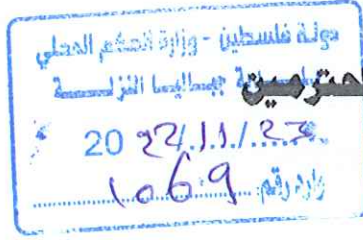 دولة فلسطين - وزارة الحكم المحلي
بلدية جباليا النزلــــة
حترمين
20 22/11/23
وارد رقم 1069